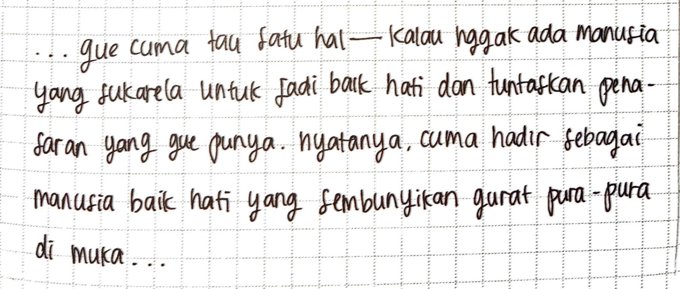 ... gue cuma tau satu hal — kalau nggak ada manusia
yang sukarela untuk jadi baik hati dan tuntaskan pena-
saran yang gue punya. nyatanya, cuma hadir sebagai
manusia baik hati yang sembunyikan gurat pura-pura
di muka...